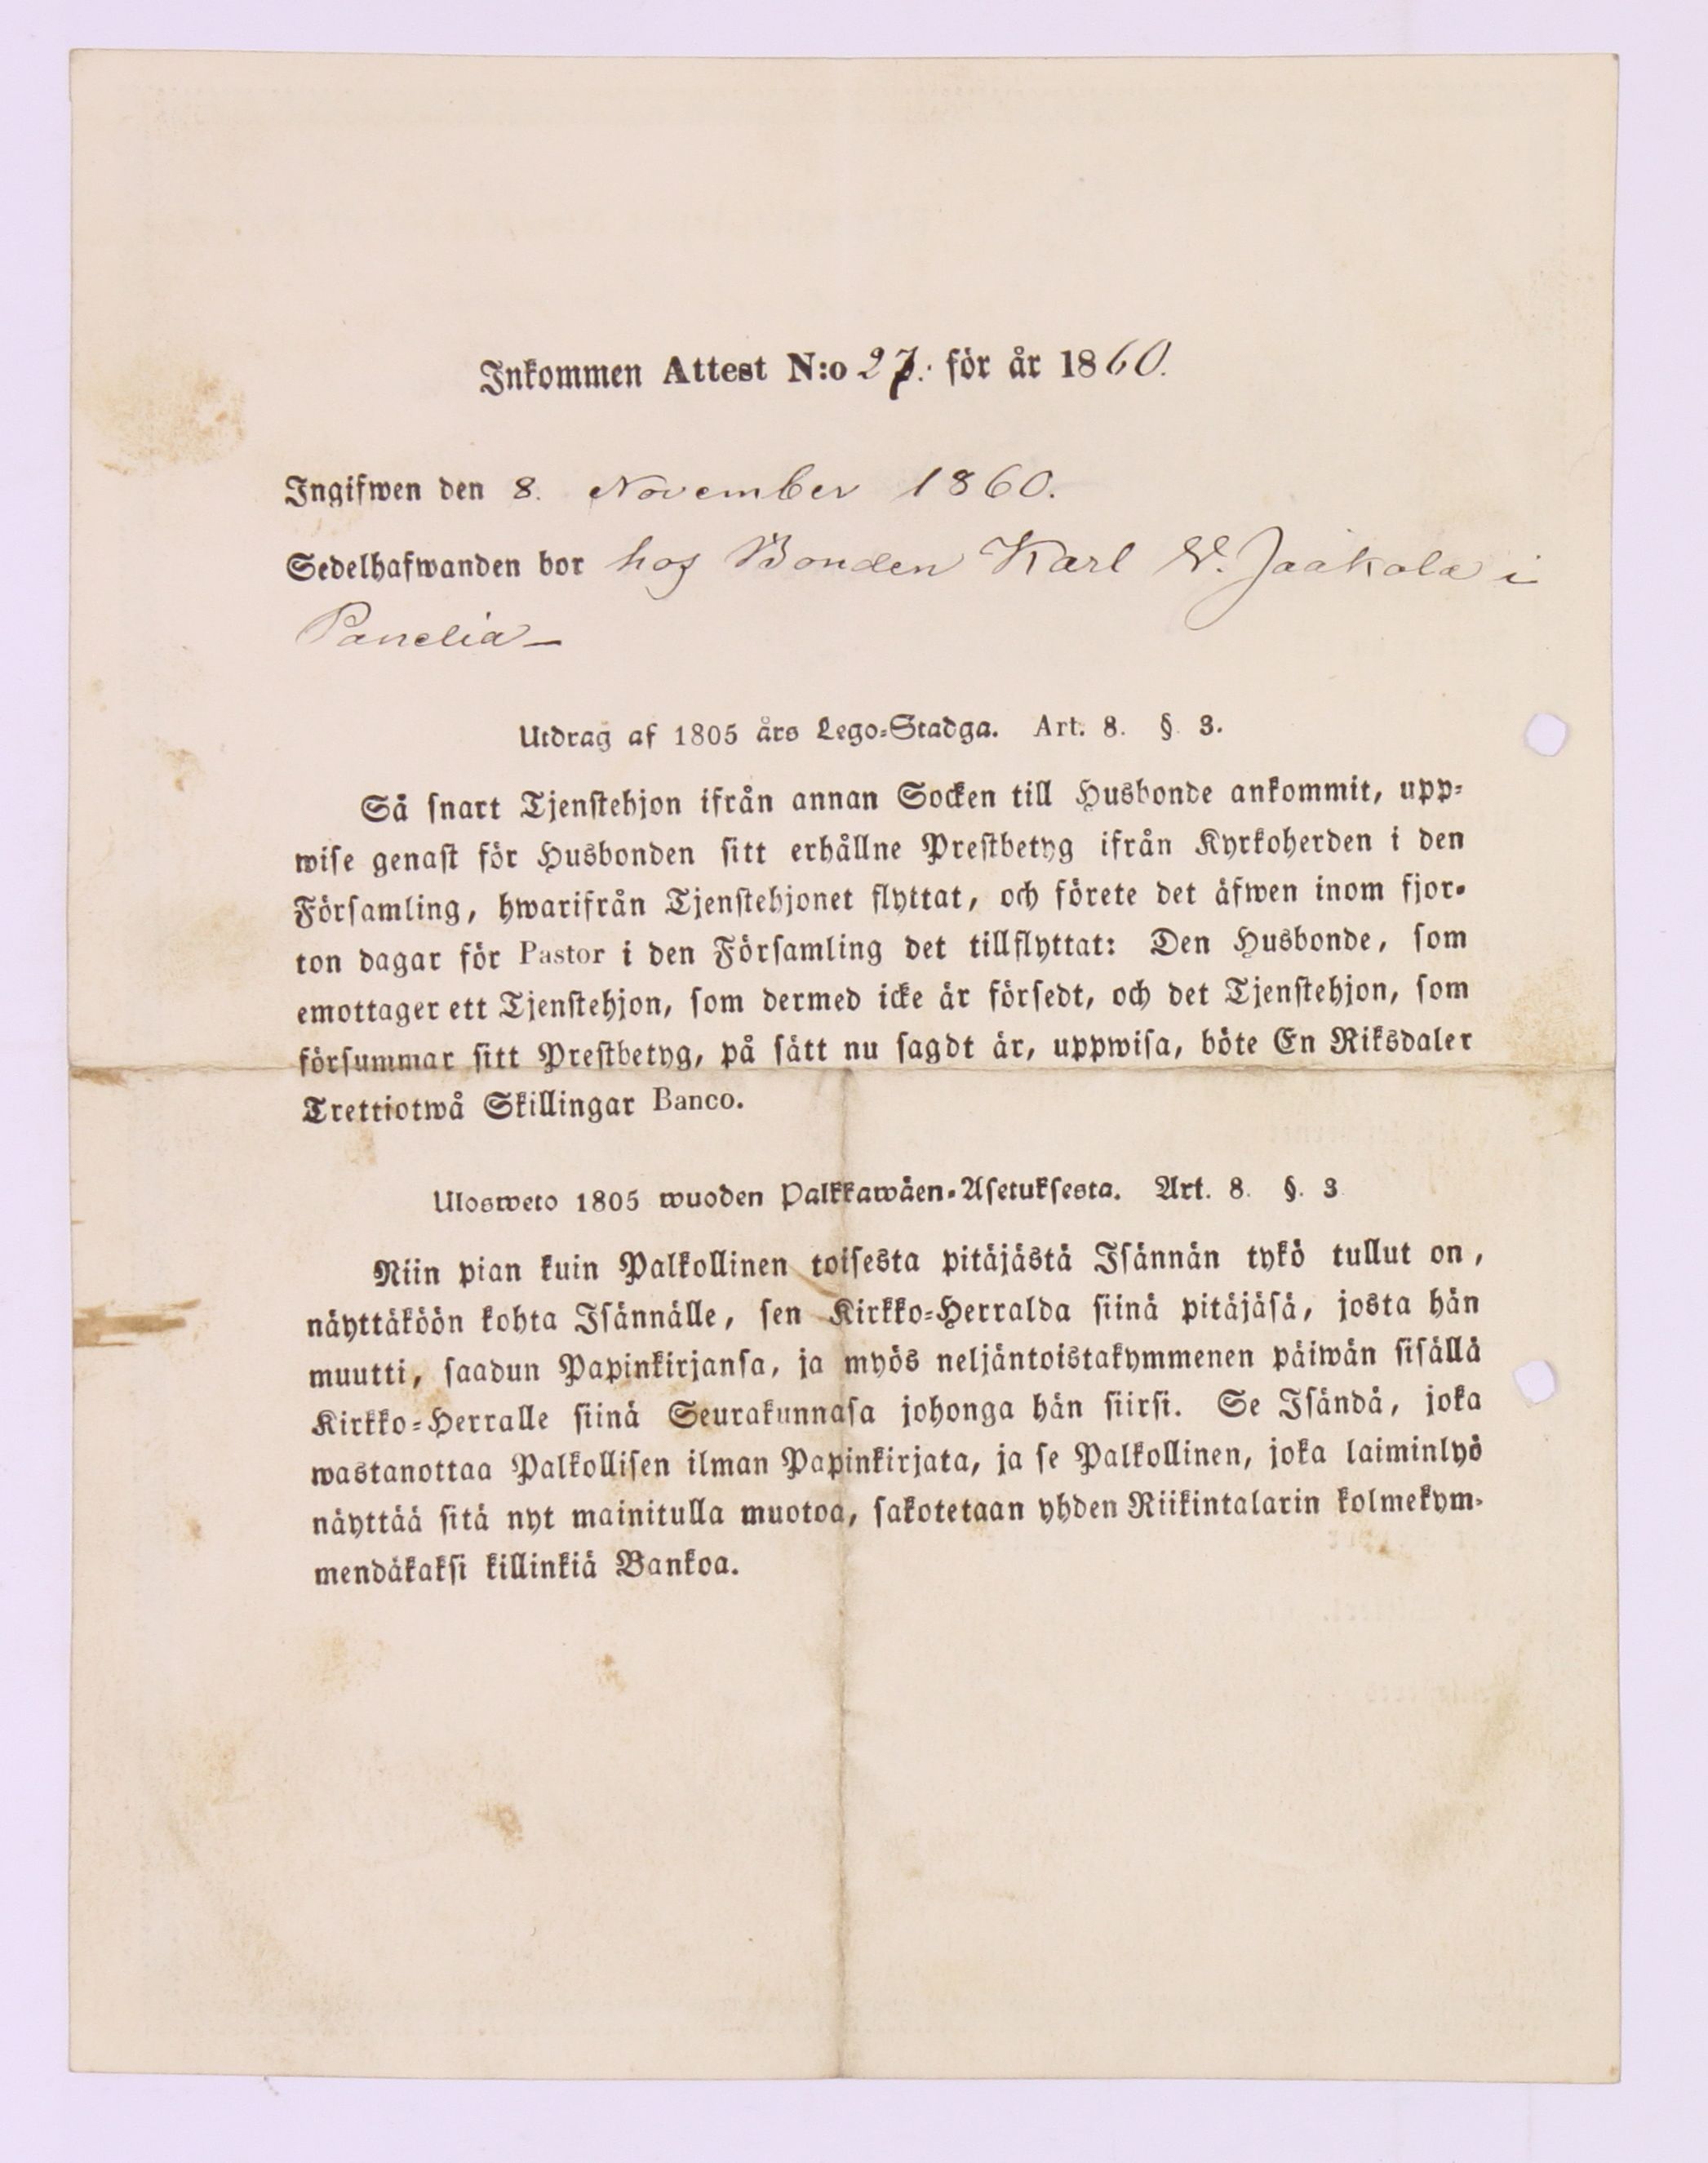 Inkommen Attest N:o 27. för år 1860.
Ingifwen den 8. November 1860.
Sedelhafwanden bor hos Bonden Karl W. Jaakola i
Panelia —
Utdrag af 1805 års Lego-Stadga. Art. 8. § 3.
Så snart Tjenstehjon ifrån annan Socken till Husbonde ankommit, upp-
wise genast för Husbonden sitt erhållne Prestbetyg ifrån Kyrkoherden i den
Församling, hwarifrån Tjenstehjonet flyttat, och förete det äfwen inom fjor-
ton dagar för Pastor i den Församling det tillflyttat: Den Husbonde, som
emottager ett Tjenstehjon, som dermed icke är försedt, och det Tjenstehjon, som
försummar sitt Prestbetyg, på sätt nu sagdt är, uppwisa, böte En Riksdaler
Trettiotwå Skillingar Banco.
Ulosweto 1805 wuoden Palkkawäen-Asetuksesta. Art. 8. §. 3
Niin pian kuin Palkollinen toisesta pitäjästä Isännän tykö tullut on,
näyttäköön kohta Isännälle, sen Kirkko-Herralda siinä pitäjäsä, josta hän
muutti, saadun Papinkirjansa, ja myös neljäntoistakymmenen päiwän sisällä
Kirkko-Herralle siinä Seurakunnasa johonga hän siirsi. Se Isändä, joka
wastanottaa Palkollisen ilman Papinkirjata, ja se Palkollinen, joka laiminlyö
näyttää sitä nyt mainitulla muotoa, sakotetaan yhden Riikintalarin kolmekym-
mendäkaksi killinkiä Bankoa.